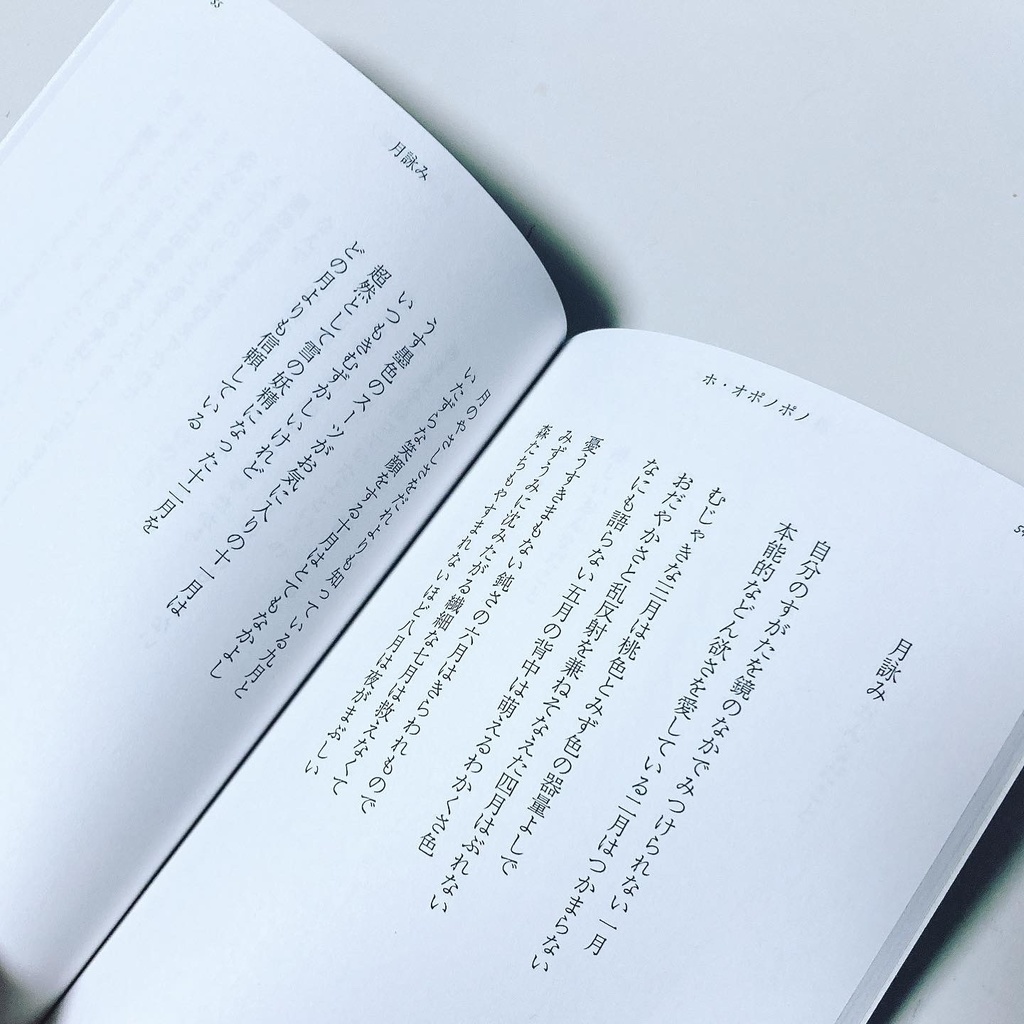 54
ホ・オポノポノ
月詠み
自分のすがたを鏡のなかでみつけられない一月
本能的などん欲さを愛している二月はつかまらない
むじゃきな三月は桃色とみず色の器量よしで
おだやかさと乱反射を兼ねそなえた四月はぶれない
なにも語らない五月の背中は萌えるわかくさ色
憂うすきまもない鈍さの六月はきらわれもので
みずうみに沈みたがる繊細な七月は救えなくて
森たちもやすまれないほど八月は夜がまぶしい
55
月詠み
月のやさしさをだれよりも知っている九月と
いたずらな笑顔をする十月はとてもなかよし
うす墨色のスーツがお気に入りの十一月は
いつもきむずかしいけれど
超然として雪の妖精になった十二月を
どの月よりも信頼している